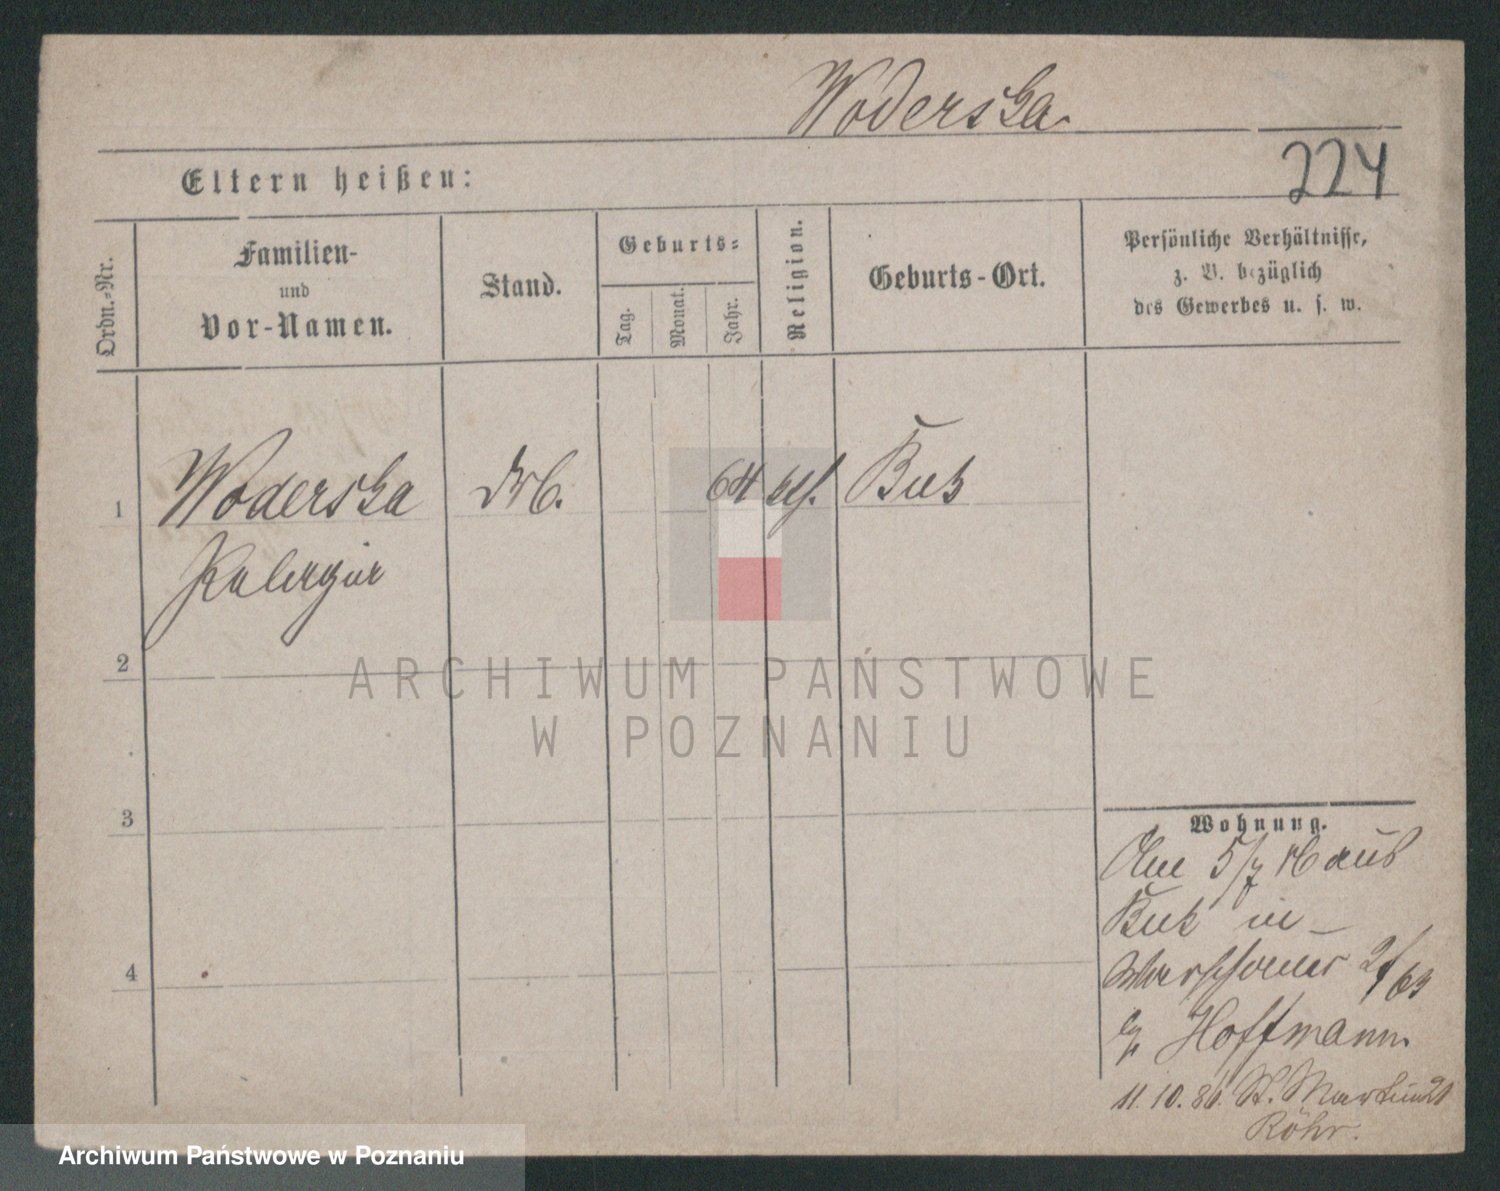 Woderska
224
Eltern heißen:
Ordn.-Nr.
Familien-
und
Vor-Namen.
Stand.
Geburts-
Tag.
Monat.
Jahr.
Religion.
Geburts-Ort.
Persönliche Verhältnisse,
z. B. bezüglich
des Gewerbes u. s. w.
1
Woderska
64 ktf. Buk
2
3
4
Wohnung.
5/7 86 aus
Buk in
Hoffmann
11.10.86. St. Martin 21
Röhr.
ARCHIWUM PAŃSTWOWE
W POZNANIU
Archiwum Państwowe w Poznaniu